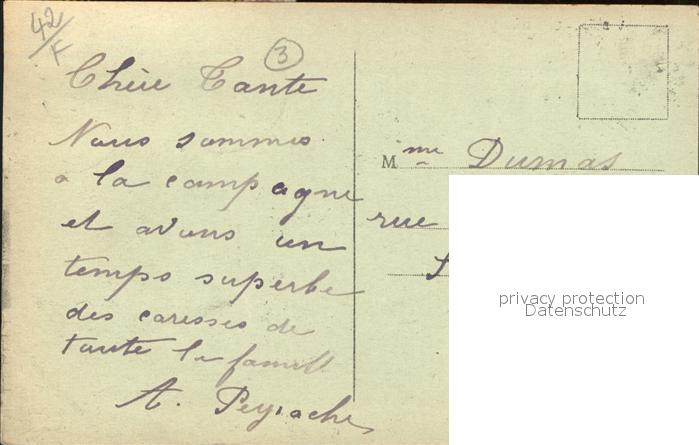 42/F
3
Chère Tante
Nous sommes
a la campagne
et avons un
temps superbe
des caresses de
toute la famill
A. Peyrache
Mme Dumas
rue
privacy protection
Datenschutz